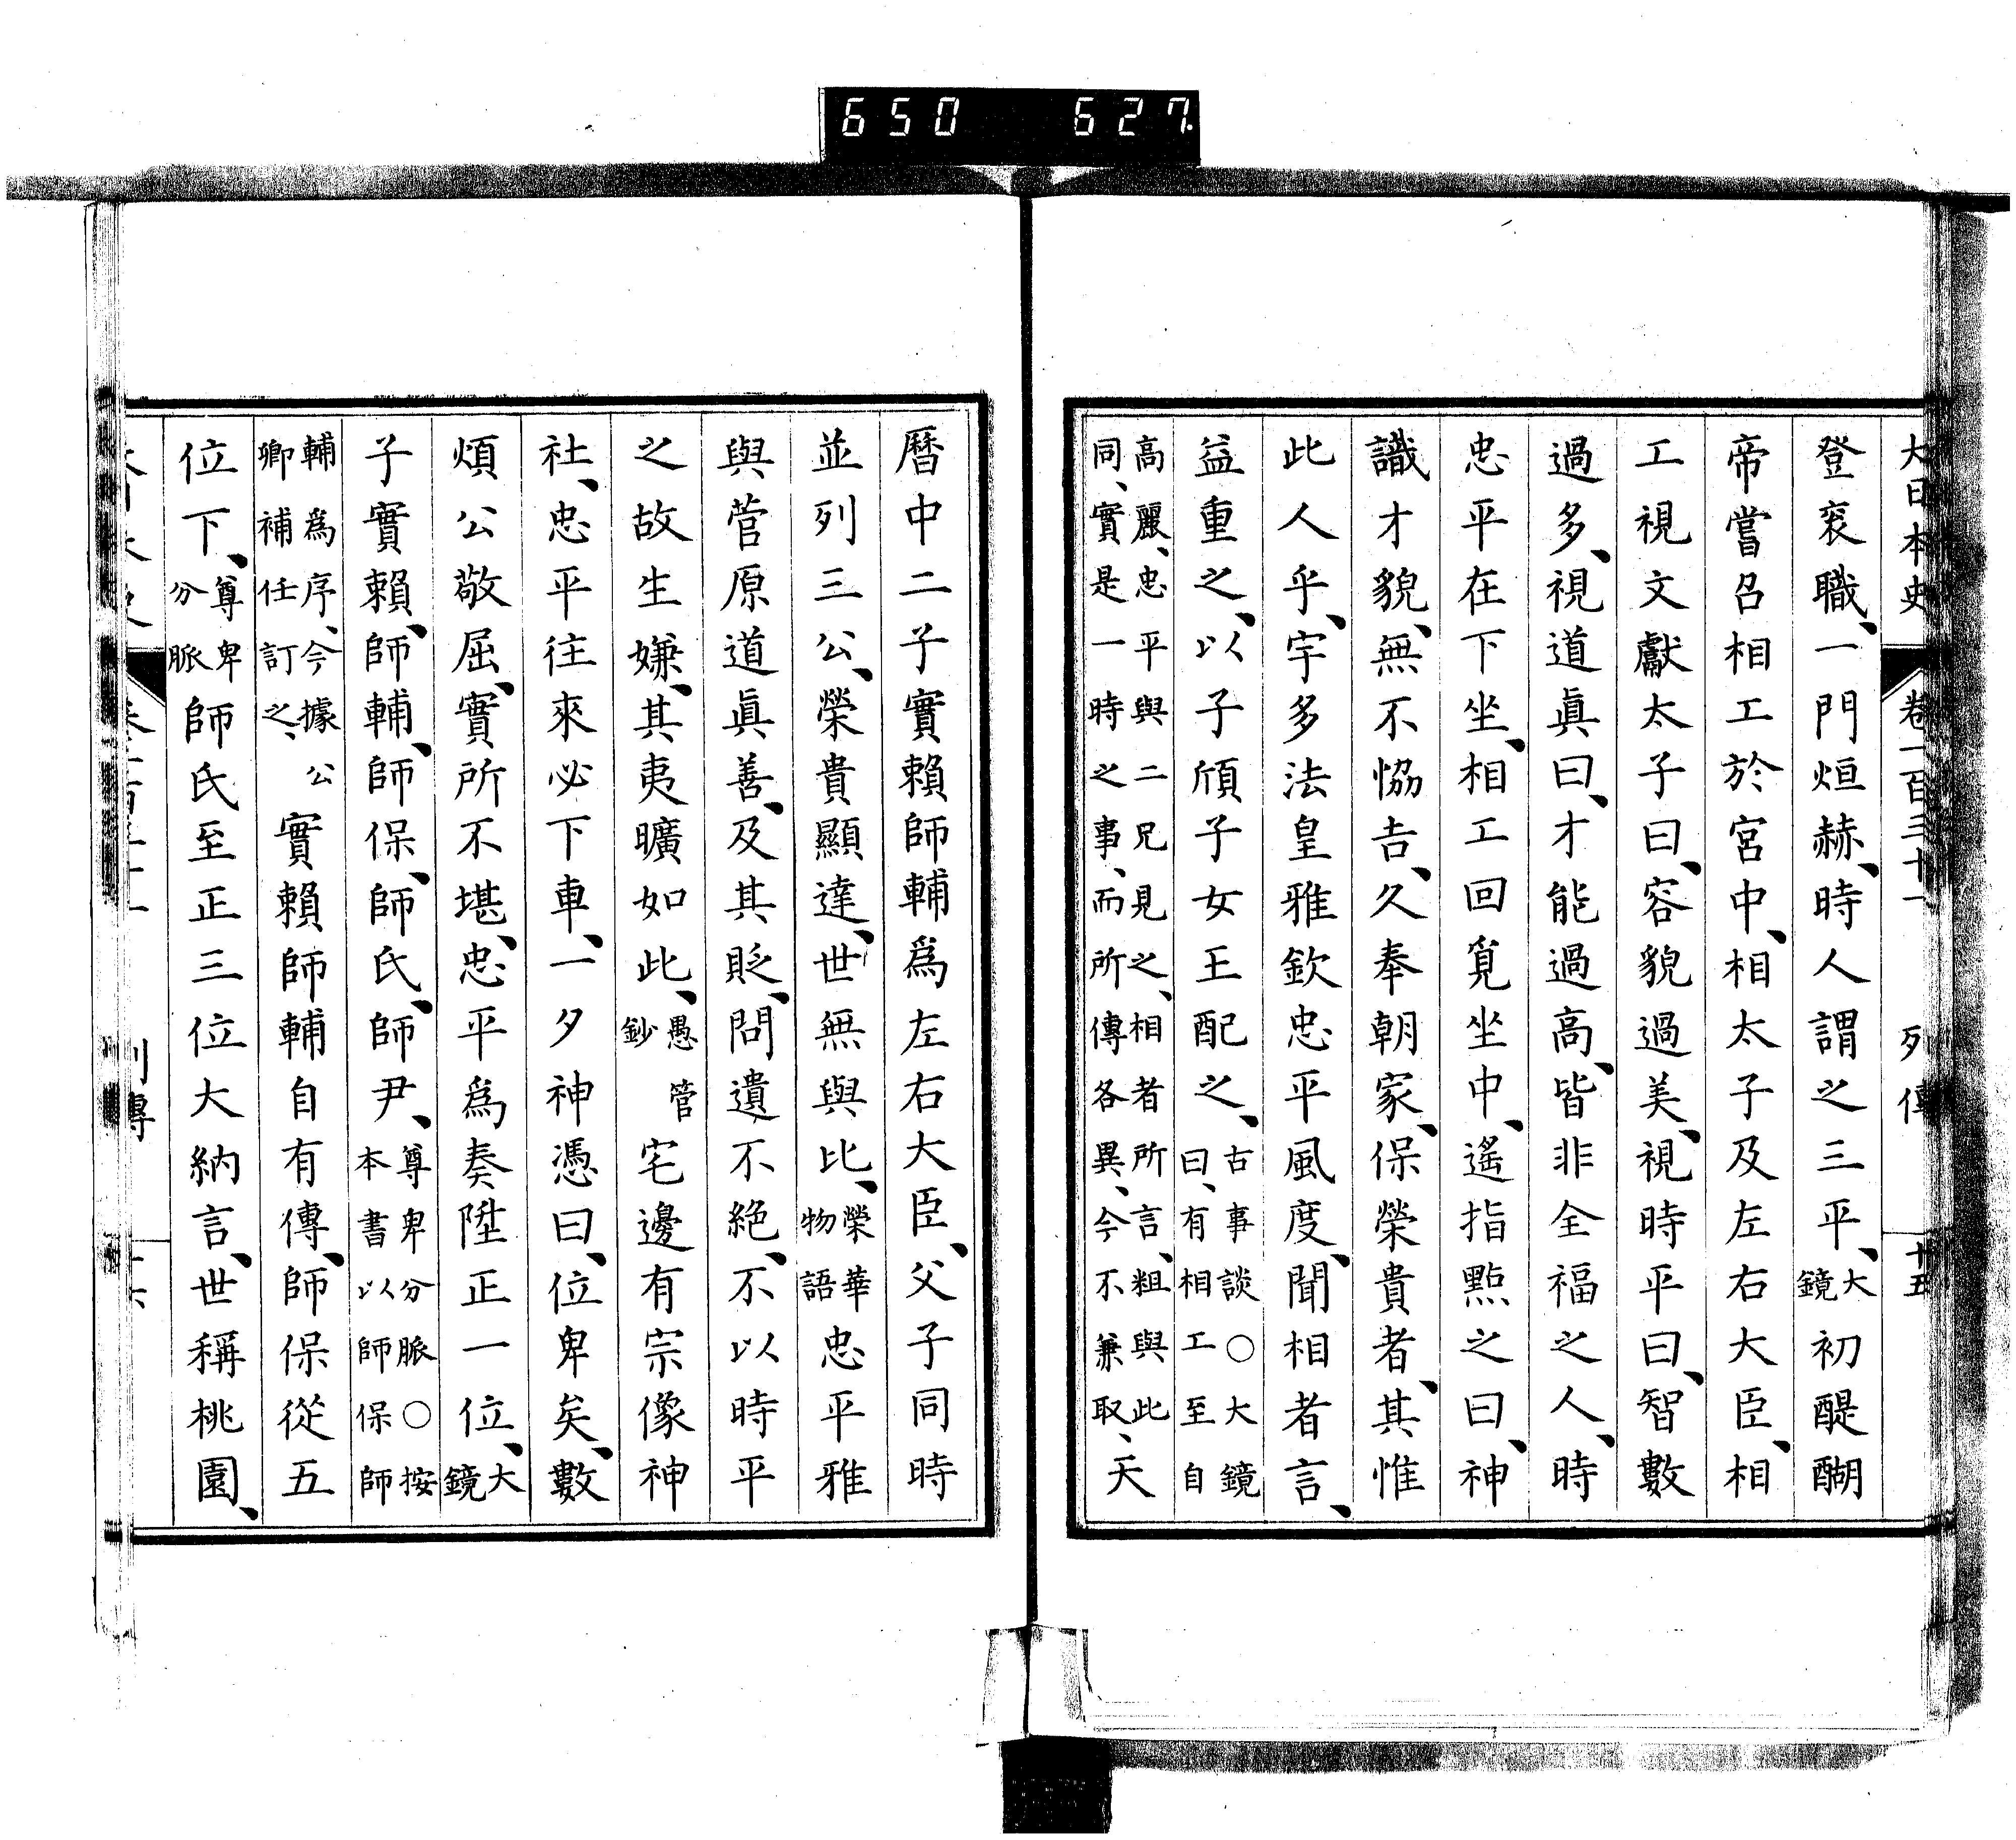 650 627
大日本史 卷一百三十一 列傳 十五
登衮職、一門烜赫、時人謂之三平、大鏡初醍醐
帝嘗召相工於宮中、相太子及左右大臣、相
工視文獻太子曰、容貌過美、視時平曰、智數
過多、視道眞曰、才能過高、皆非全福之人、時
忠平在下坐、相工回覓坐中、遙指點之曰、神
識才貌、無不恊吉、久奉朝家、保榮貴者、其惟
此人乎、宇多法皇雅欽忠平風度、聞相者言、
益重之、以子頎子女王配之、古事談○大鏡曰、有相工至自
高麗、忠平與二兄見之、相者所言、粗與此同、實是一時之事、而所傳各異、今不兼取、天
曆中二子實賴師輔爲左右大臣、父子同時
並列三公、榮貴顯達、世無與比、榮華物語忠平雅
與菅原道眞善、及其貶、問遺不絕、不以時平
之故生嫌、其夷曠如此、愚管鈔宅邊有宗像神
社、忠平往來必下車、一夕神憑曰、位卑矣、數
煩公敬屈、實所不堪、忠平爲奏陞正一位、大鏡
子實賴、師輔、師保、師氏、師尹、尊卑分脈○按本書以師保師
輔爲序、今據公卿補任訂之、實賴師輔自有傳、師保從五
位下、尊卑分脈師氏至正三位大納言、世稱桃園、
列傳